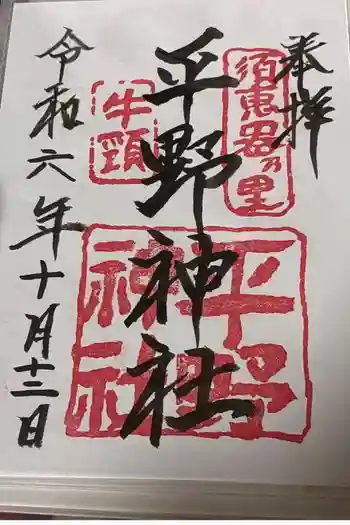 奉拝
須恵器乃里
平野神社
平野神社
牛頸
令和六年十月十二日